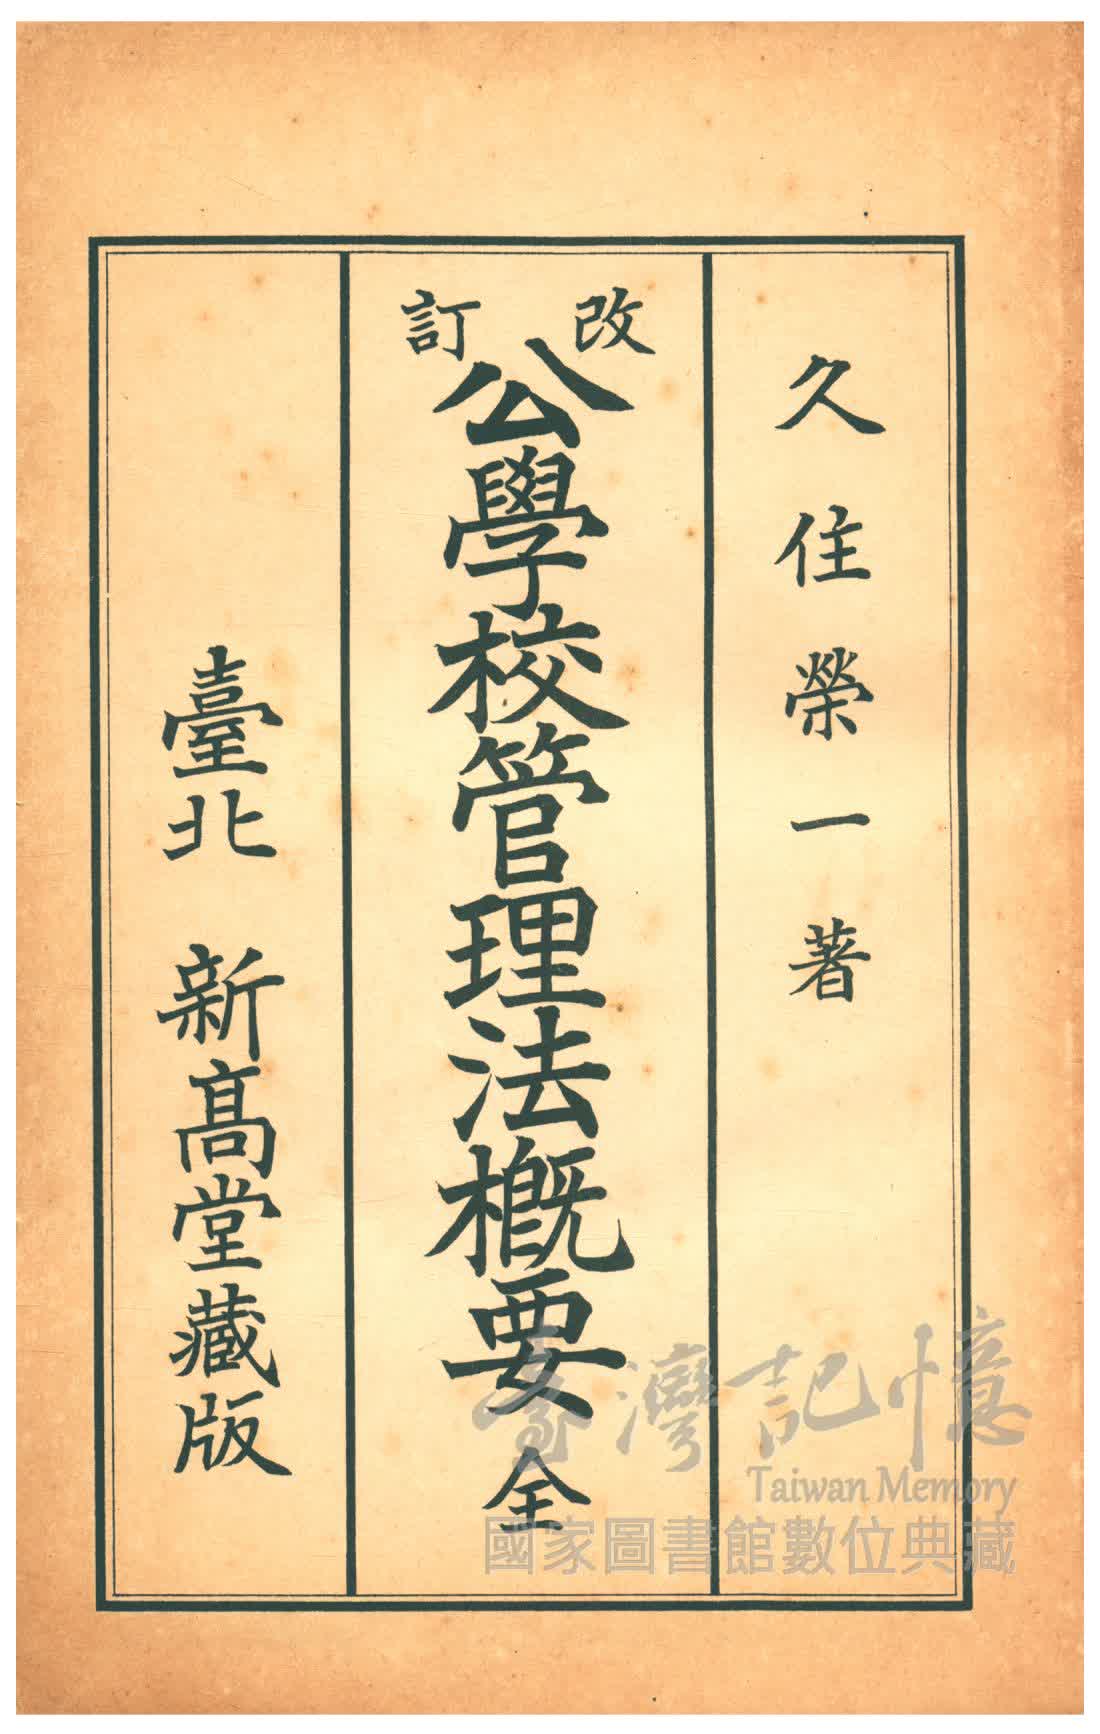 久住榮一著
改訂
公學校管理法概要全
臺北 新高堂藏版
臺灣記憶
Taiwan Memory
國家圖書館數位典藏